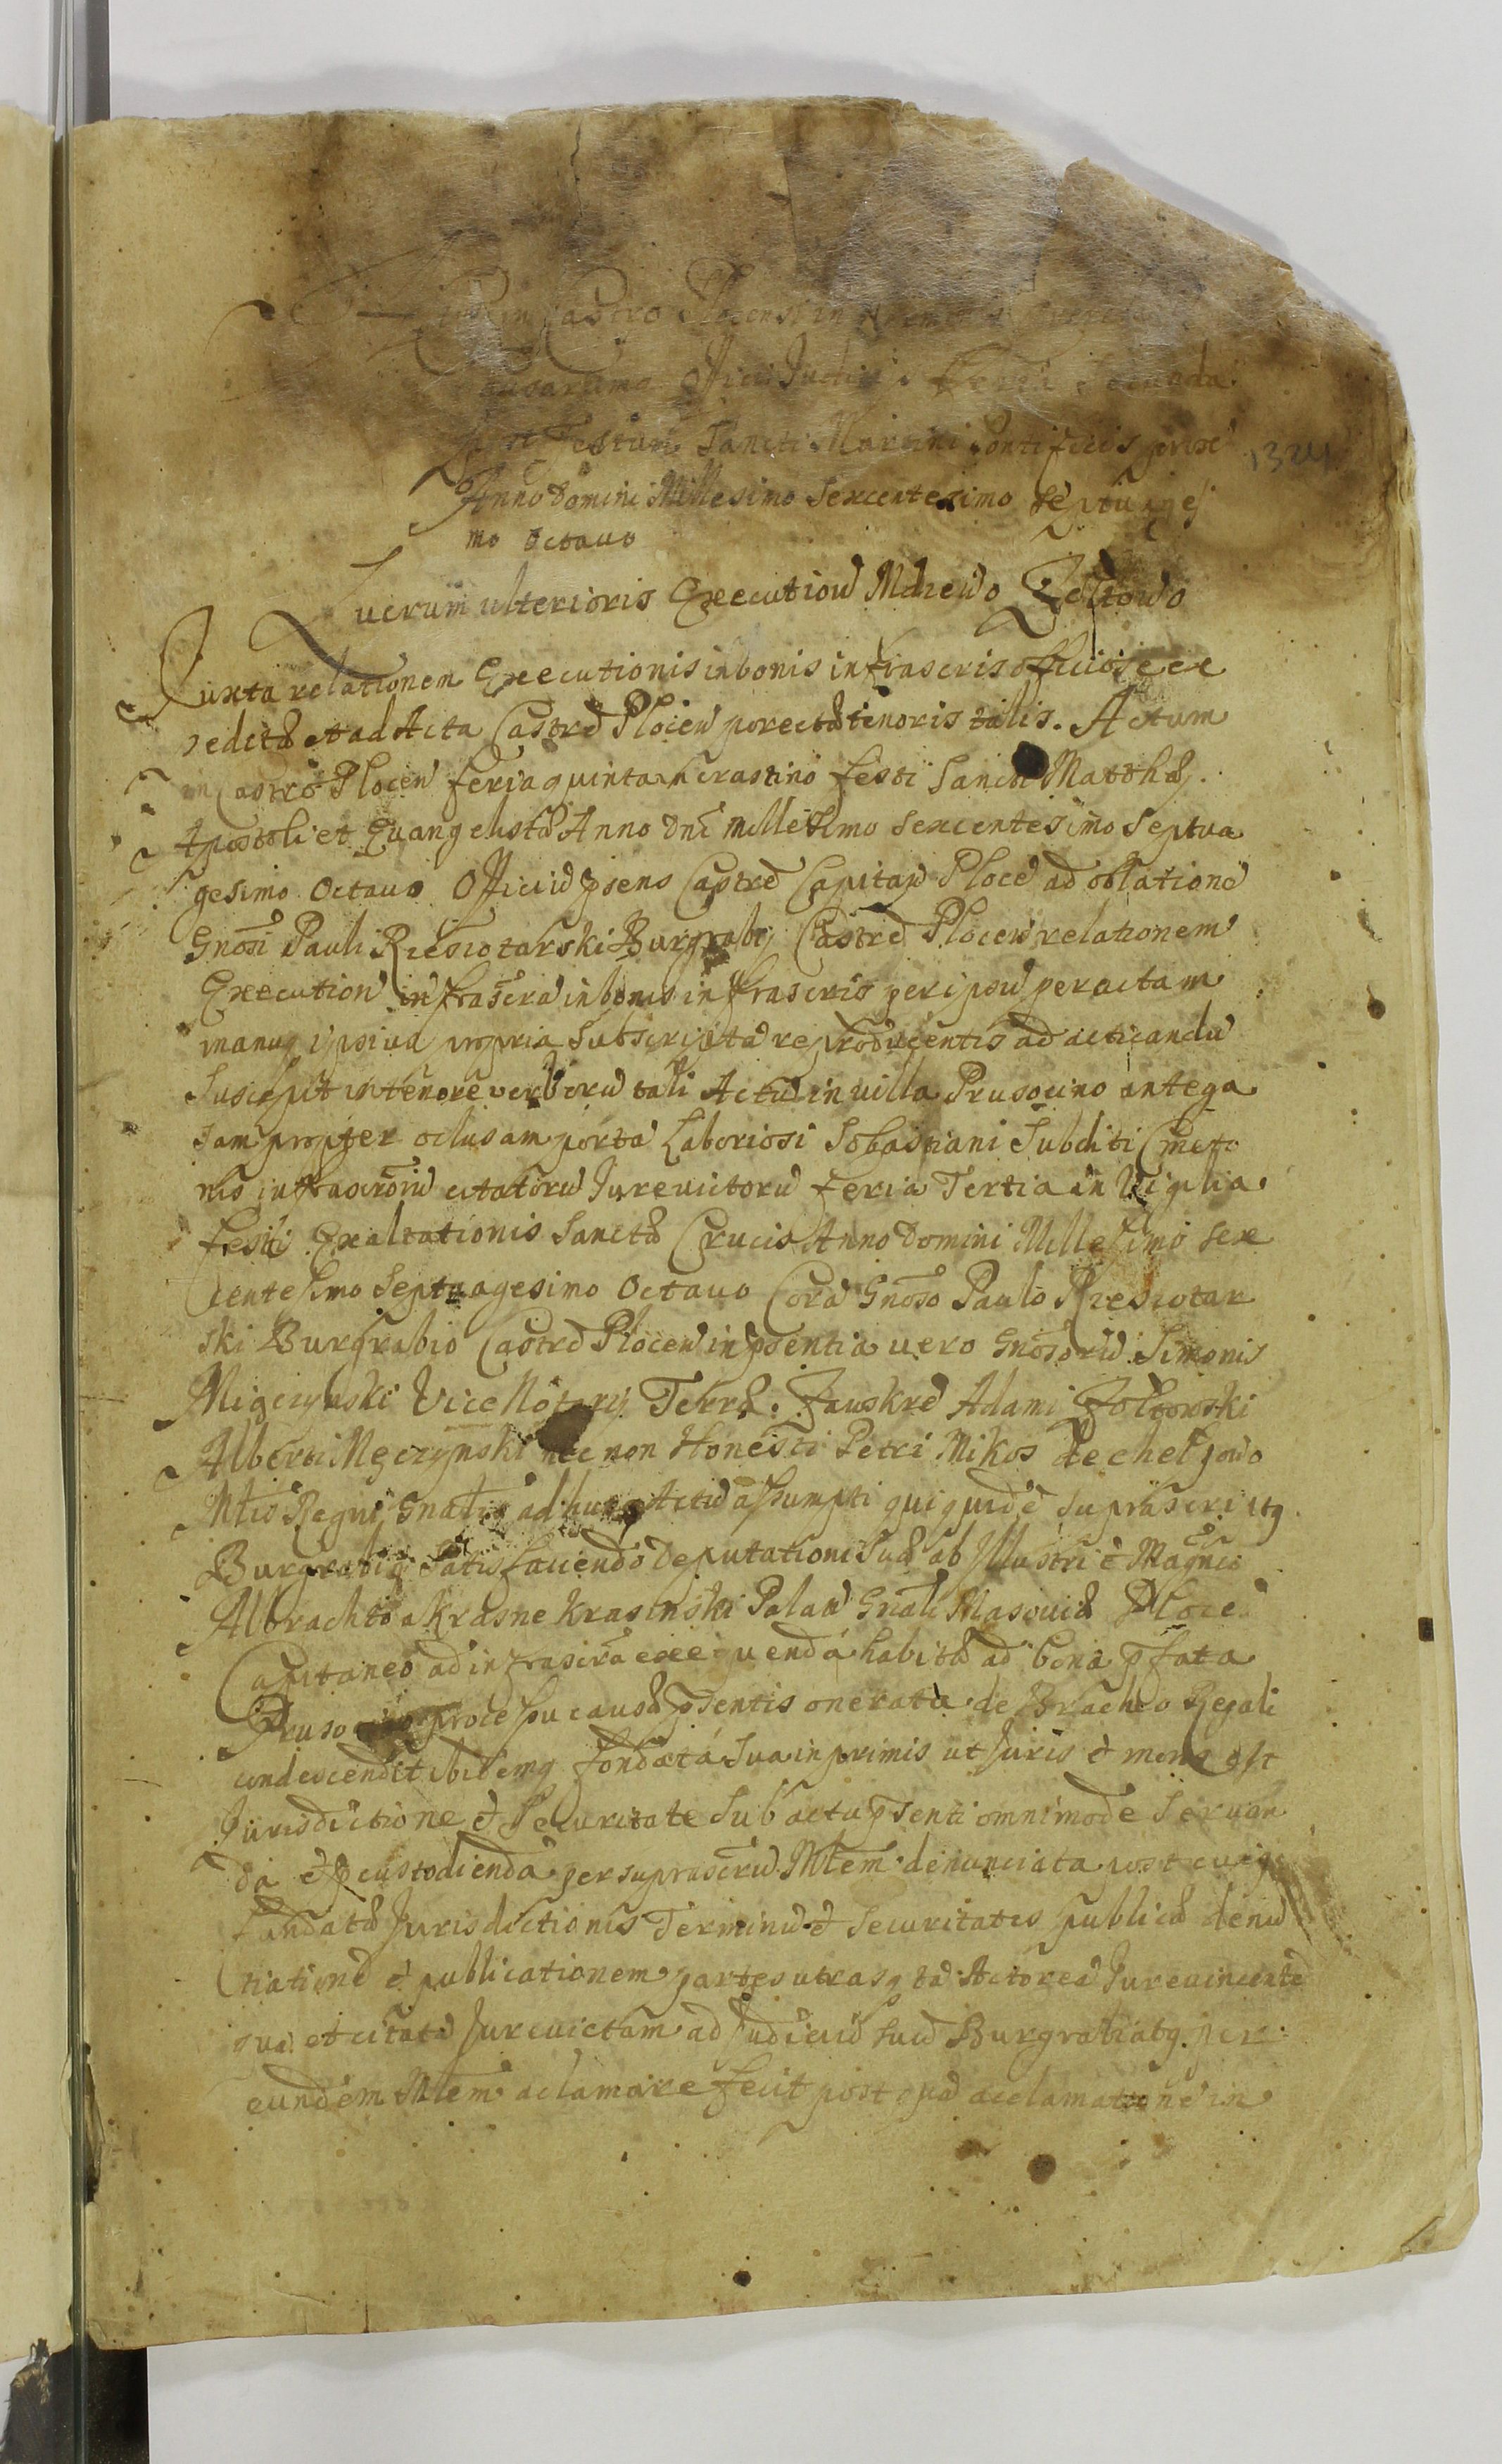 in Castro Plocensi in
Officii Judicii Feria Secunda
post Festum Sancti Martini Pontificis prox
1321
Anno Domini Millesimo Sexcentesimo Septuagesi
mo Octavo
Lucrum ulterioris Execution
Juxta relationem Executionis in bonis infrascris officiose ex
pedita et ad Acta Castre Plocen porecta tenoris talis. Actum
in Castro Plocen feria quinta in crastino festi Sancti Matthæ
Apostoli et Evangelista Anno Dni millesimo Sexcentesimo Septua
gesimo Octavo Officiu psens Castre Capitan Ploce ad oblatione
Gnosi Pauli Riesiotarski Burgrabij Castre Plocen relationem
Execution infrascra in bonis infrascris per ipsu peractam
manuq ipsius propria Subscripta reproducentis ad acticandu
Suscepit in tenore verboru tali Actu in villa Prusocino ante ga
sam propter oclusam porta Laboriosi Sobastiani Subditi Cmeto
nis infrascroru citatoru Jurevictoru feria Tertia in Vigilia
festi Exaltationis Sancta Crucis Anno Domini Millesimo Sex
centesimo Septuagesimo Octavo Cora Gnoso Paulo Riesiotar
ski Burgrabio Castre Plocen in psentia vero Gnosoru Simonis
Migczynski Vice Notarij Terra Zauskre Adami Zoltowski
Alberti Męczynski nec non Honesti Petri Mikos de
Mlis Regni Gnalis ad hunc Actu assumpti qui quide suprascri itq
Burgrabiq Satisfaciendo Deputationi Sua ab Illustri et Magnco
Albrachto a Krasne Krasinski Palan Gnali Masovia Ploce
Capitaneo ad infrascra exequenda habita ad bona pfata
processu causa psentis onerata de Brachio Regali
condescendit ibidemq fondata Sua in primis ut Juris et moris est
Jurisdictione et Securitate Sub actu psenti omnimode Servan
da et custodienda per suprascru Mlem denunciata post cuiq
fundata Jurisdictionis Terminu et Securitatis publica denu
tiatione et publicationem partes utrasq ta Actorea Jurevincente
qua et citata Jurevictam ad Judiciu Suu Burgrabiatq per
eundem Mlem aclamare fecit post qua acclamatione in